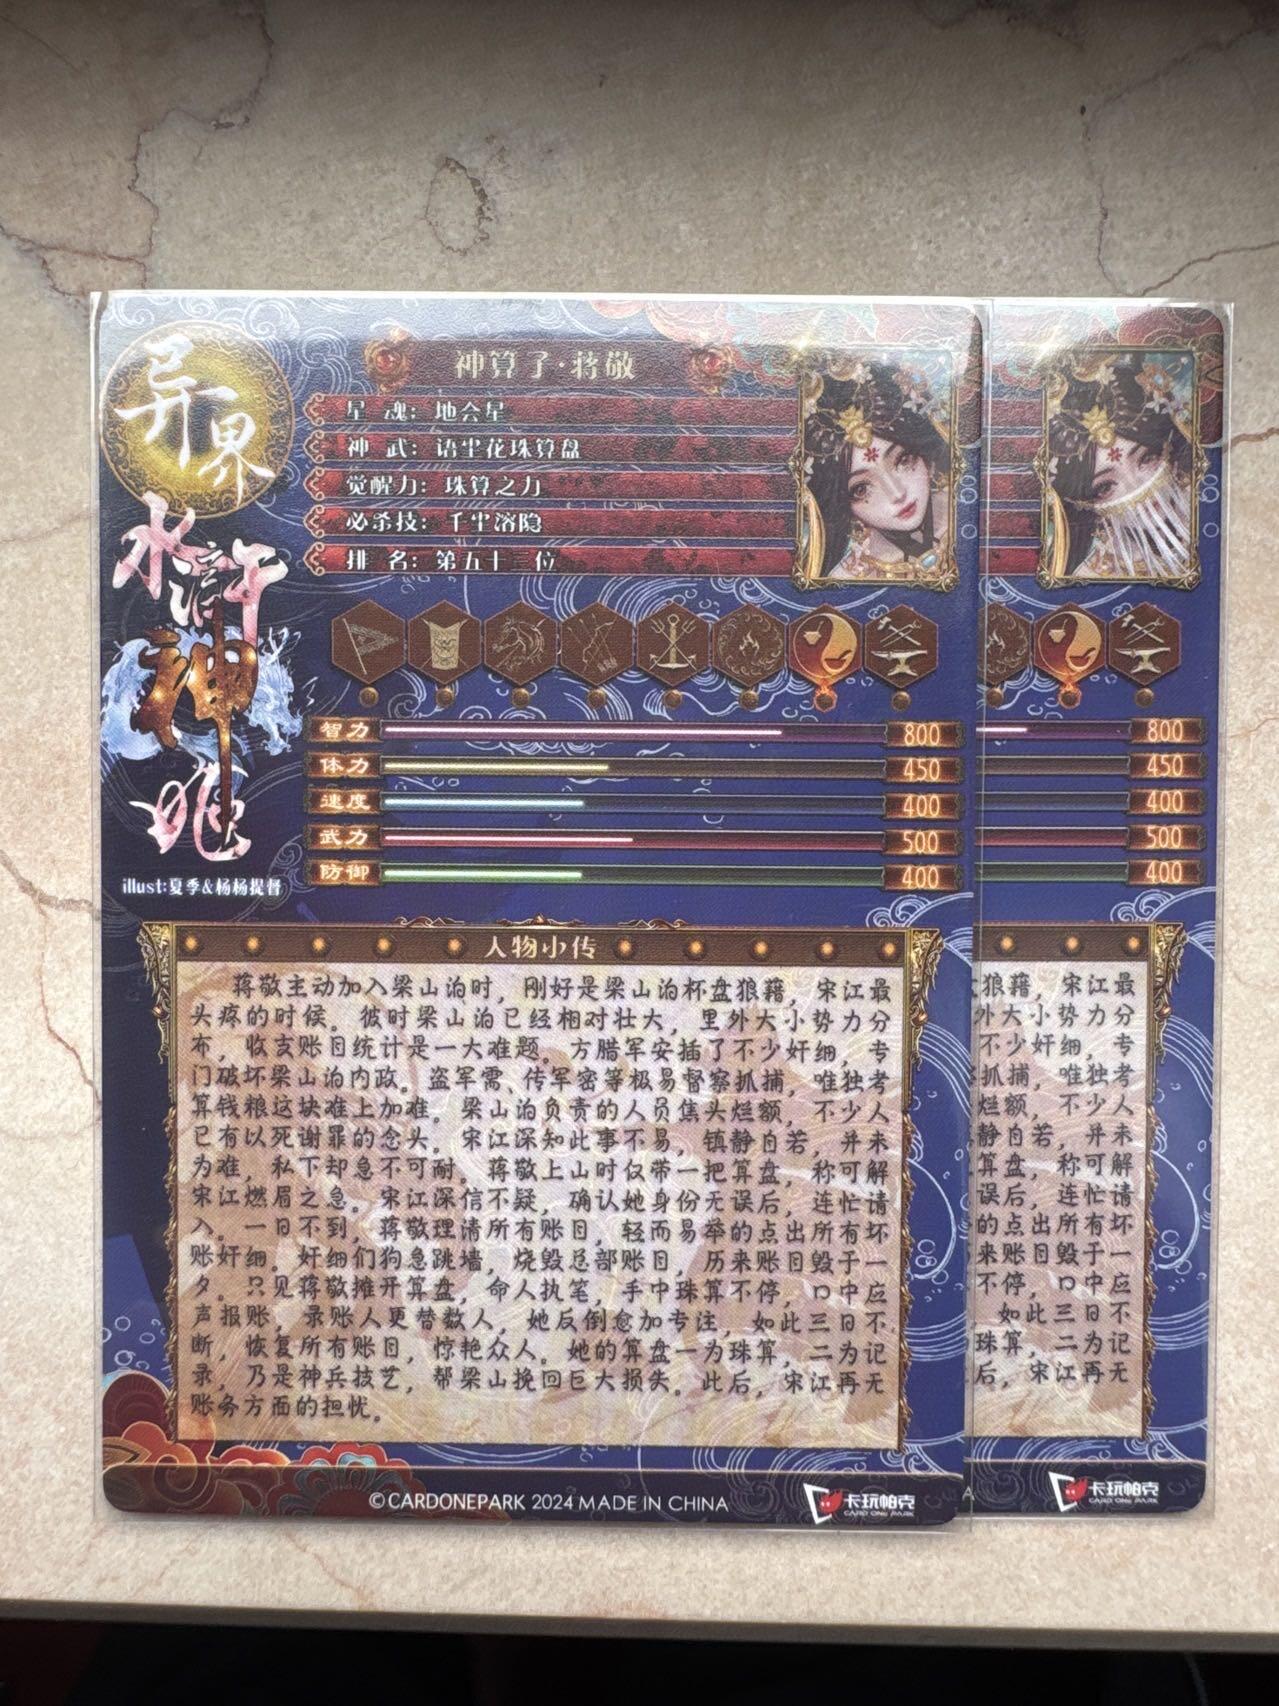 异界
水浒
神姬
illust:夏季&杨杨提督
神算子·蒋敬
星 魂：地会星
神 武：语尘花珠算盘
觉醒力：珠算之力
必杀技：千尘溶隐
排 名：第五十三位
智力 800
体力 450
速度 400
武力 500
防御 400
人物小传
蒋敬主动加入梁山泊时，刚好是梁山泊杯盘狼藉，宋江最
头疼的时候。彼时梁山泊已经相对壮大，里外大小势力分
布，收支账目统计是一大难题。方腊军安插了不少奸细，专
门破坏梁山泊内政。盗军需、传军密等极易督察抓捕，唯独考
算钱粮这块难上加难。梁山泊负责的人员焦头烂额，不少人
已有以死谢罪的念头。宋江深知此事不易，镇静自若，并未
为难，私下却急不可耐。蒋敬上山时仅带一把算盘，称可解
宋江燃眉之急。宋江深信不疑，确认她身份无误后，连忙请
入。一日不到，蒋敬理清所有账目，轻而易举的点出所有坏
账奸细。奸细们狗急跳墙，烧毁总部账目，历来账目毁于一
夕。只见蒋敬摊开算盘，命人执笔，手中珠算不停，口中应
声报账，录账人更替数人，她反倒愈加专注，如此三日不
断，恢复所有账目，惊艳众人。她的算盘一为珠算，二为记
录，乃是神兵技艺，帮梁山挽回巨大损失。此后，宋江再无
账务方面的担忧。
©CARDONEPARK 2024 MADE IN CHINA
卡玩帕克
CARD ONE PARK
800
450
400
500
400
狼藉，宋江最
外大小势力分
不少奸细，专
抓捕，唯独考
烂额，不少人
静自若，并未
算盘，称可解
误后，连忙请
的点出所有坏
来账目毁于一
不停，口中应
如此三日不
珠算，二为记
后，宋江再无
卡玩帕克
CARD ONE PARK